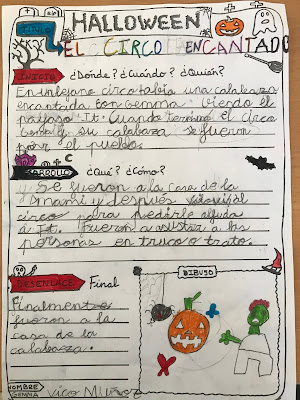 HALLOWEEN
TITULO
EL CIRCO ENCANTADO
INICIO ¿Dónde? ¿Cuándo? ¿Quién?
En un lejano circo había una calabaza
encantada con Gemma viendo el
payaso It. Cuando terminó el circo
Gemma y su calabaza se fueron
por el pueblo.
DESARROLLO ¿Qué? ¿Cómo?
y Se fueron a la casa de la
mami y después al
circo para pedirle ayuda
a It. Fueron a asustar a las
personas en truco o trato.
DESENLACE Final
Finalmente
fueron a la
casa de la
calabaza.
DIBUJO
NOMBRE
GEMMA Vico Muñoz